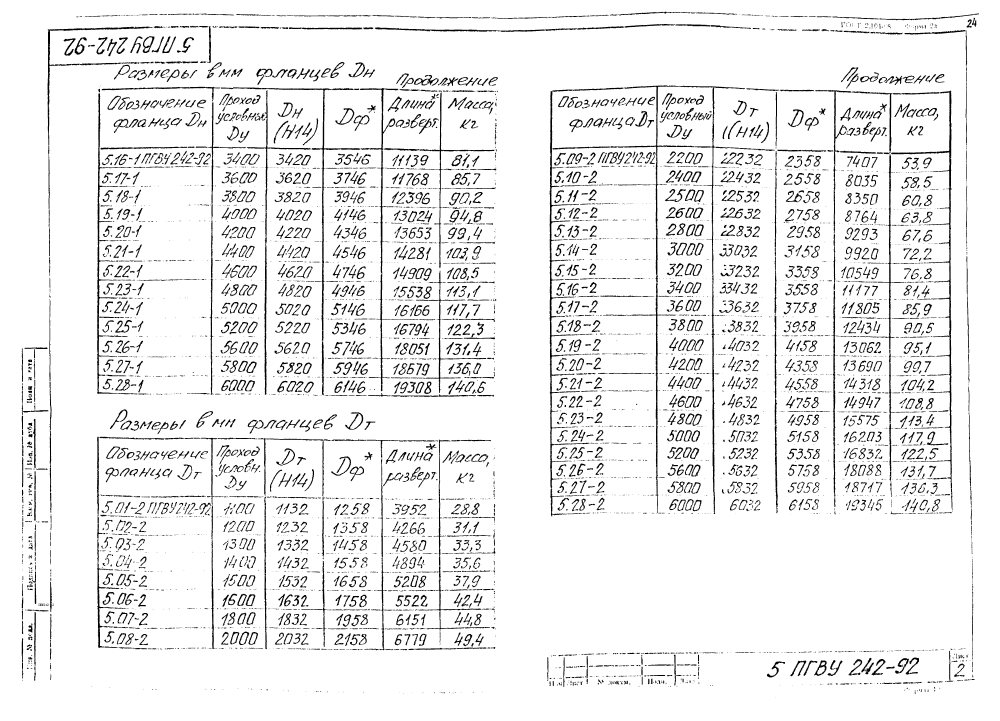 24
5 ПГВУ 242-92
Размеры в мм фланцев Dн
Продолжение
Обозначение фланца Dн | Проход условный Dу | Dн (H14) | Dф* | Длина* разверт. | Масса, кг
5.16-1 ПГВУ 242-92 3400 3420 3546 11139 81,1
5.17-1 3600 3620 3746 11768 85,7
5.18-1 3800 3820 3946 12396 90,2
5.19-1 4000 4020 4146 13024 94,8
5.20-1 4200 4220 4346 13653 99,4
5.21-1 4400 4420 4546 14281 103,9
5.22-1 4600 4620 4746 14909 108,5
5.23-1 4800 4820 4946 15538 113,1
5.24-1 5000 5020 5146 16166 117,7
5.25-1 5200 5220 5346 16794 122,3
5.26-1 5600 5620 5746 18051 131,4
5.27-1 5800 5820 5946 18679 136,0
5.28-1 6000 6020 6146 19308 140,6
Размеры в мм фланцев Dт
Обозначение фланца Dт | Проход условн. Dу | Dт (H14) | Dф* | Длина* разверт. | Масса, кг
5.01-2 ПГВУ 242-92 1100 1132 1258 3952 28,8
5.02-2 1200 1232 1358 4266 31,1
5.03-2 1300 1332 1458 4580 33,3
5.04-2 1400 1432 1558 4894 35,6
5.05-2 1500 1532 1658 5208 37,9
5.06-2 1600 1632 1758 5522 42,4
5.07-2 1800 1832 1958 6151 44,8
5.08-2 2000 2032 2158 6779 49,4
Продолжение
Обозначение фланца Dт | Проход условный Dу | Dт (H14) | Dф* | Длина* разверт. | Масса, кг
5.09-2 ПГВУ 242-92 2200 2232 2358 7407 53,9
5.10-2 2400 2432 2558 8035 58,5
5.11-2 2500 2532 2658 8350 60,8
5.12-2 2600 2632 2758 8764 63,8
5.13-2 2800 2832 2958 9293 67,6
5.14-2 3000 3032 3158 9920 72,2
5.15-2 3200 3232 3358 10549 76,8
5.16-2 3400 3432 3558 11177 81,4
5.17-2 3600 3632 3758 11805 85,9
5.18-2 3800 3832 3958 12434 90,5
5.19-2 4000 4032 4158 13062 95,1
5.20-2 4200 4232 4358 13690 99,7
5.21-2 4400 4432 4558 14318 104,2
5.22-2 4600 4632 4758 14947 108,8
5.23-2 4800 4832 4958 15575 113,4
5.24-2 5000 5032 5158 16203 117,9
5.25-2 5200 5232 5358 16832 122,5
5.26-2 5600 5632 5758 18088 131,7
5.27-2 5800 5832 5958 18717 136,3
5.28-2 6000 6032 6158 19345 140,8
5 ПГВУ 242-92
Лист
2
№ докум.